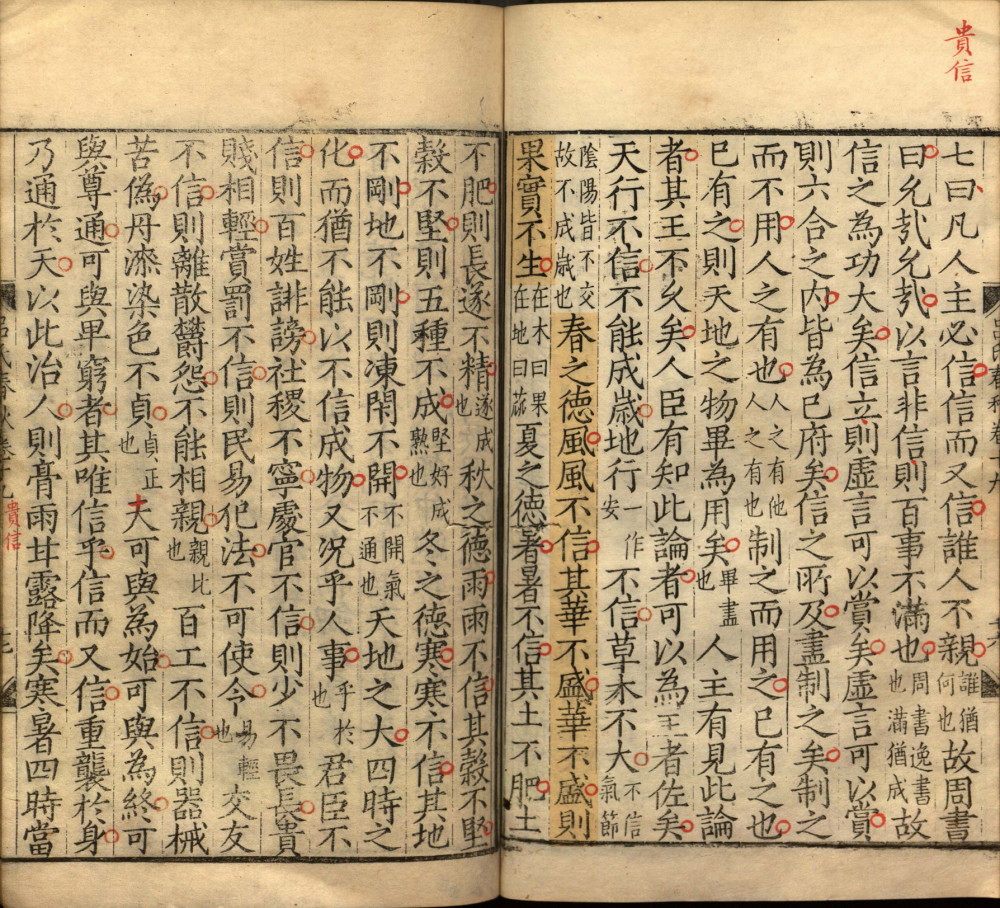 貴信
七曰凡人主必信信而又信誰人不親誰猶何也故周書
曰允哉允哉以言非信則百事不滿也周書逸書也滿猶成故
信之為功大矣信立則虛言可以賞矣虛言可以賞
則六合之內皆為己府矣信之所及盡制之矣制之
而不用人之有也人之有他人之有也制之而用之己有之也
已有之則天地之物畢為用矣畢盡也人主有見此論
者其王不久矣人臣有知此論者可以為王者佐矣
天行不信不能成歲地行一作安不信草木不大不信氣節
陰陽皆不交故不成歲也春之德風風不信其華不盛華不盛則
果實不生在木曰果在地曰蓏夏之德暑暑不信其土不肥土
不肥則長遂不精遂成也秋之德雨雨不信其穀不堅
穀不堅則五種不成堅好成熟也冬之德寒寒不信其地
不剛地不剛則凍閉不開不開氣不通也天地之大四時之
化而猶不能以不信成物又況乎人事乎於也君臣不
信則百姓誹謗社稷不寧處官不信則少不畏長貴
賤相輕賞罰不信則民易犯法不可使令易輕也交友
不信則離散鬱怨不能相親親比也百工不信則器械
苦偽丹漆染色不貞貞正也夫可與為始可與為終可
與尊通可與卑窮者其唯信乎信而又信重襲於身
乃通於天以此治人則膏雨甘露降矣寒暑四時當
貴信